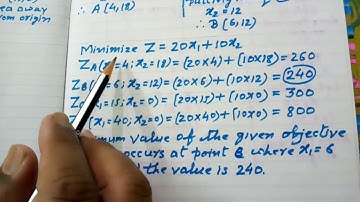 ea away
rom origin
∴ A(4,18)
x₂ = 12
∴ B(6,12)
Minimize Z = 20x₁+10x₂
Z_A(x₁=4; x₂=18) = (20×4)+(10×18) = 260
Z_B(=6; x₂=12) = (20×6)+(10×12) = 240
=15; x₂=0) = (20×15)+(10×0) = 300
x₁=40; x₂=0) = (20×40)+(10×0) = 800
mum value of the given objective
occurs at point B where x₁=6
the value is 240.